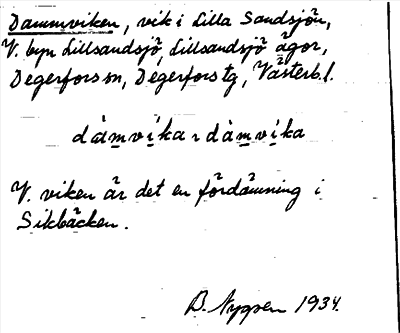 Dammviken, vik i Lilla Sandsjön,
V. byn Lillsandsjö, Lillsandsjö ägor,
Degerfors sn, Degerfors tg, Västerb. l.
dàmvika, dàmvíka
V. viken är det en fördämning i
Sikbäcken.
B. Nygren 1934.